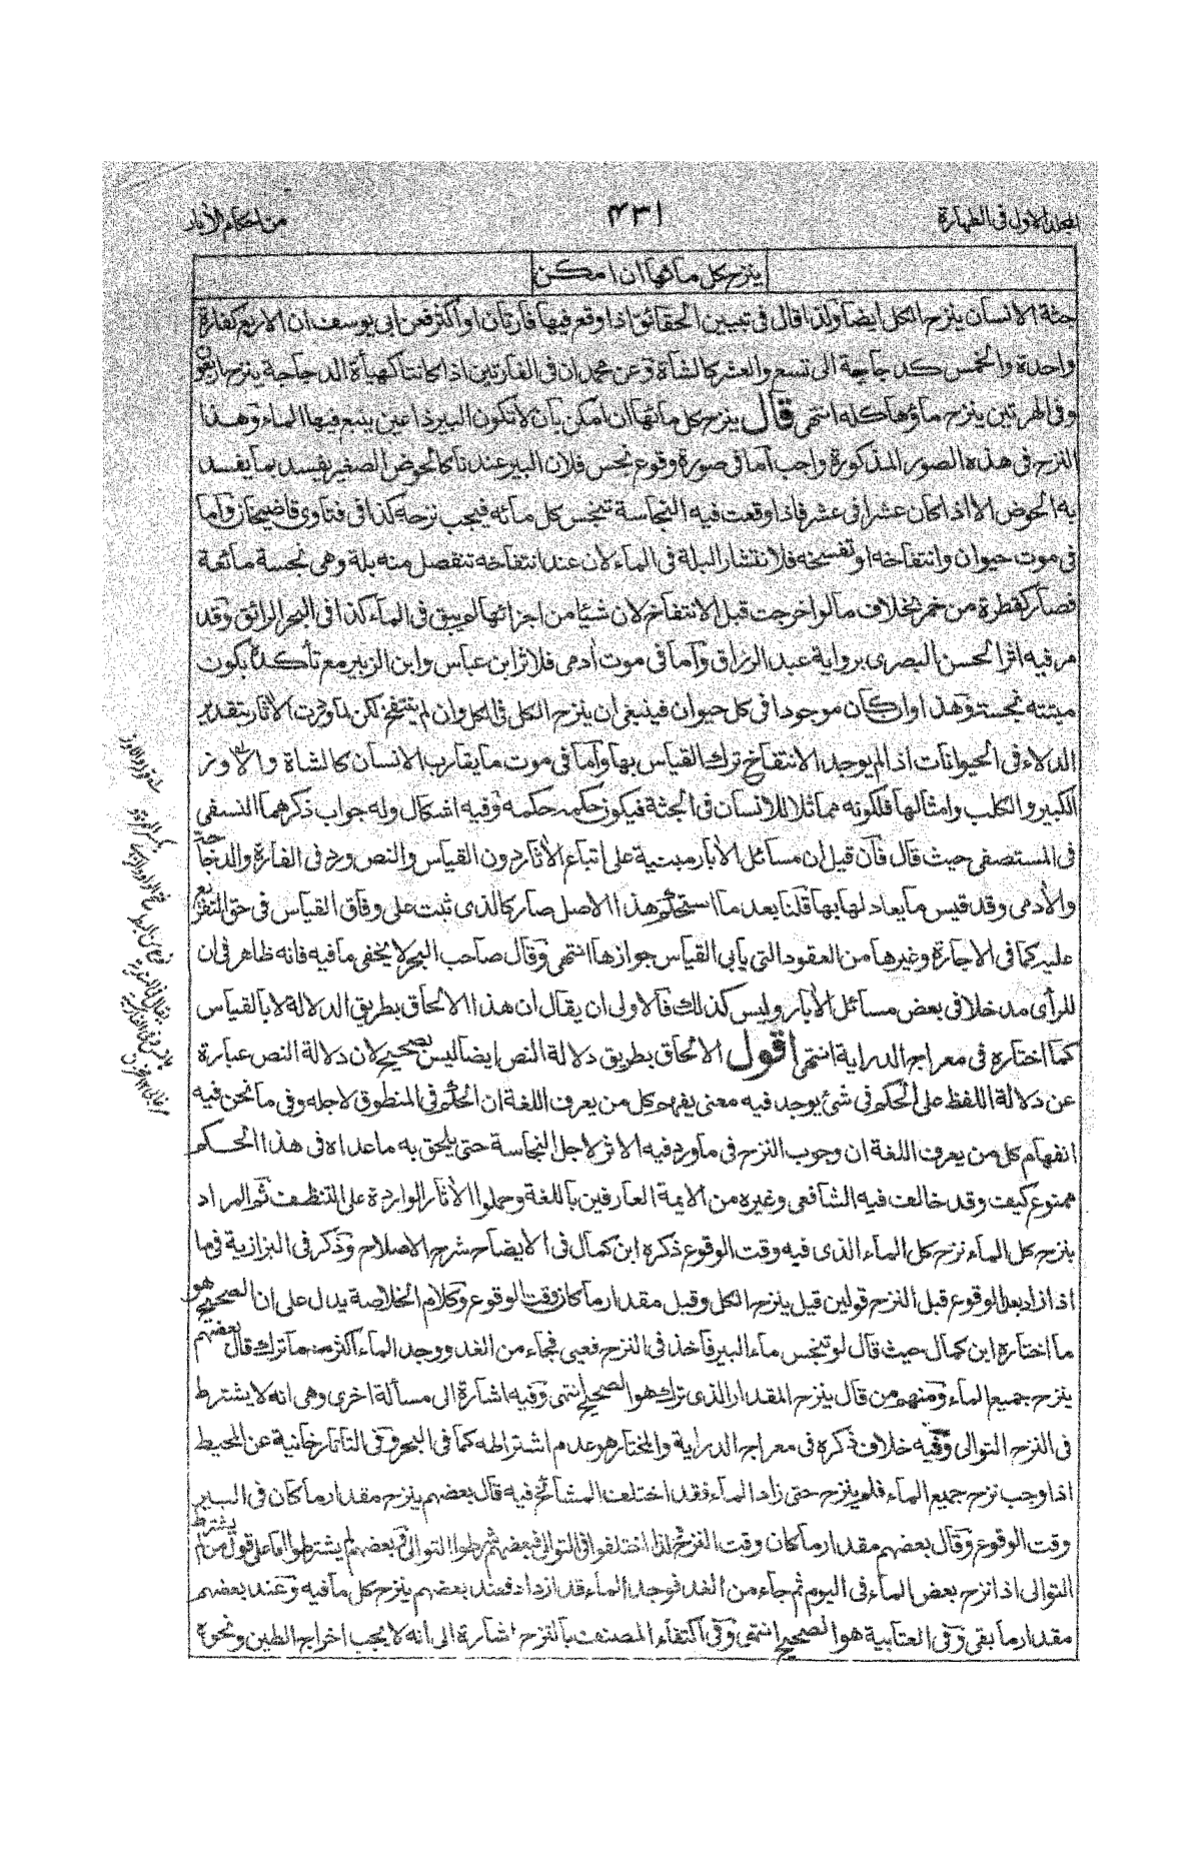 المجلد الاول فى الطهارة
۴۳۱
من احكام الآبار
ينزح كل مائها ان امكن
جثة الانسان ينزح الكل ايضا ولذا قال فى تبيين الحقائق اذا وقع فيها فارتان او اكثر فعن ابى يوسف ان الاربع كفارة
واحدة والخمس كدجاجة الى تسع والعشر كالشاة وعن محمد ان فى الفارتين اذا كانتا كهيأة الدجاجة ينزح اربعون
وفى الهرتين ينزح ماؤها كله انتهى قال ينزح كل مائها ان امكن بان لا تكون البير ذا عين ينبع فيها الماء وهذا
النزح فى هذه الصور المذكورة واجب اما فى صورة وقوع نجس فلان البير عندنا كالحوض الصغير يفسد بما يفسد
به الحوض الا اذا كان عشرا فى عشر فاذا وقعت فيه النجاسة تنجس كل مائه فيجب نزحه كذا فى فتاوى قاضيخان واما
فى موت حيوان وانتفاخه او تفسخه فلانتشار البلة فى الماء لان عند انتفاخه تنفصل منه بلة وهى نجسة مائعة
فصار كقطرة من خمر بخلاف ما لو اخرجت قبل الانتفاخ لان شيئا من اجزائها لم يبق فى الماء كذا فى البحر الرائق وقد
مر فيه اثر الحسن البصرى برواية عبد الرزاق واما فى موت آدمى فلاثر ابن عباس وابن الزبير مع تأكده بكون
ميتته نجسة وهذا وان كان موجودا فى كل حيوان فينبغى ان ينزح الكل فى الكل وان لم ينتفخ لكن لما وردت الآثار بتقدير
الدلاء فى الحيوانات اذا لم يوجد الانتفاخ ترك القياس بها واما فى موت ما يقارب الانسان كالشاة والاوز
الكبير والكلب وامثالها فلكونه مماثلا للانسان فى الجثة فيكون حكمه حكمه وفيه اشكال وله جواب ذكرهما النسفى
فى المستصفى حيث قال فان قيل ان مسائل الآبار مبنية على اتباع الآثار دون القياس والنص ورد فى الفارة والدجاجة
والآدمى وقد قيس ما يعادلها بها قلنا بعد ما استحكم هذا الاصل صار كالذى ثبت على وفاق القياس فى حق التفريع
عليه كما فى الاجارة وغيرها من العقود التى يابى القياس جوازها انتهى وقال صاحب البحر لا يخفى ما فيه فانه ظاهر فى ان
للرأى مدخلا فى بعض مسائل الآبار وليس كذلك فالاولى ان يقال ان هذا الالحاق بطريق الدلالة لا بالقياس
كما اختاره فى معراج الدراية انتهى اقول الالحاق بطريق دلالة النص ايضا ليس بصحيح لان دلالة النص عبارة
عن دلالة اللفظ على الحكم فى شئ يوجد فيه معنى يفهم كل من يعرف اللغة ان الحكم فى المنطوق لاجله وفى ما نحن فيه
انفهام كل من يعرف اللغة ان وجوب النزح فى ما ورد فيه الاثر لاجل النجاسة حتى يلحق به ما عداه فى هذا الحكم
ممنوع كيف وقد خالف فيه الشافعى وغيره من الايمة العارفين باللغة وحملوا الآثار الواردة على التنظيف ثم المراد
بنزح كل الماء نزح كل الماء الذى فيه وقت الوقوع ذكره ابن كمال فى الايضاح شرح الاصلاح وذكر فى البزازية فى ما
اذا زاد بعد الوقوع قبل النزح قولين قيل ينزح الكل وقيل مقدار ما كان وقت الوقوع وكلام الخلاصة يدل على ان الصحيح هو
ما اختاره ابن كمال حيث قال لو تنجس ماء البير فاخذ فى النزح فعيى فجاء من الغد ووجد الماء اكثر منه ما ترك قال بعضهم
ينزح جميع الماء ومنهم من قال ينزح المقدار الذى ترك هو الصحيح انتهى وفيه اشارة الى مسألة اخرى وهى انه لا يشترط
فى النزح التوالى وفيه خلاف ذكره فى معراج الدراية والمختار هو عدم اشتراطه كما فى البحر وفى التاتارخانية عن المحيط
اذا وجب نزح جميع الماء فلم ينزح حتى زاد الماء فقد اختلف المشائخ فيه قال بعضهم ينزح مقدار ما كان فى البير
وقت الوقوع وقال بعضهم مقدار ما كان وقت النزح لذا اختلفوا فى التوالى فبعضهم شرطوا التوالى وبعضهم لم يشترطوا اما على قول من لم يشترط
التوالى اذا نزح بعض الماء فى اليوم ثم جاء من الغد فوجد الماء قد ازداد فعند بعضهم ينزح كل ما فيه وعند بعضهم
مقدار ما بقى وفى العتابية هو الصحيح انتهى وفى اكتفاء المصنف بالنزح اشارة الى انه لا يجب اخراج الطين ونحوه